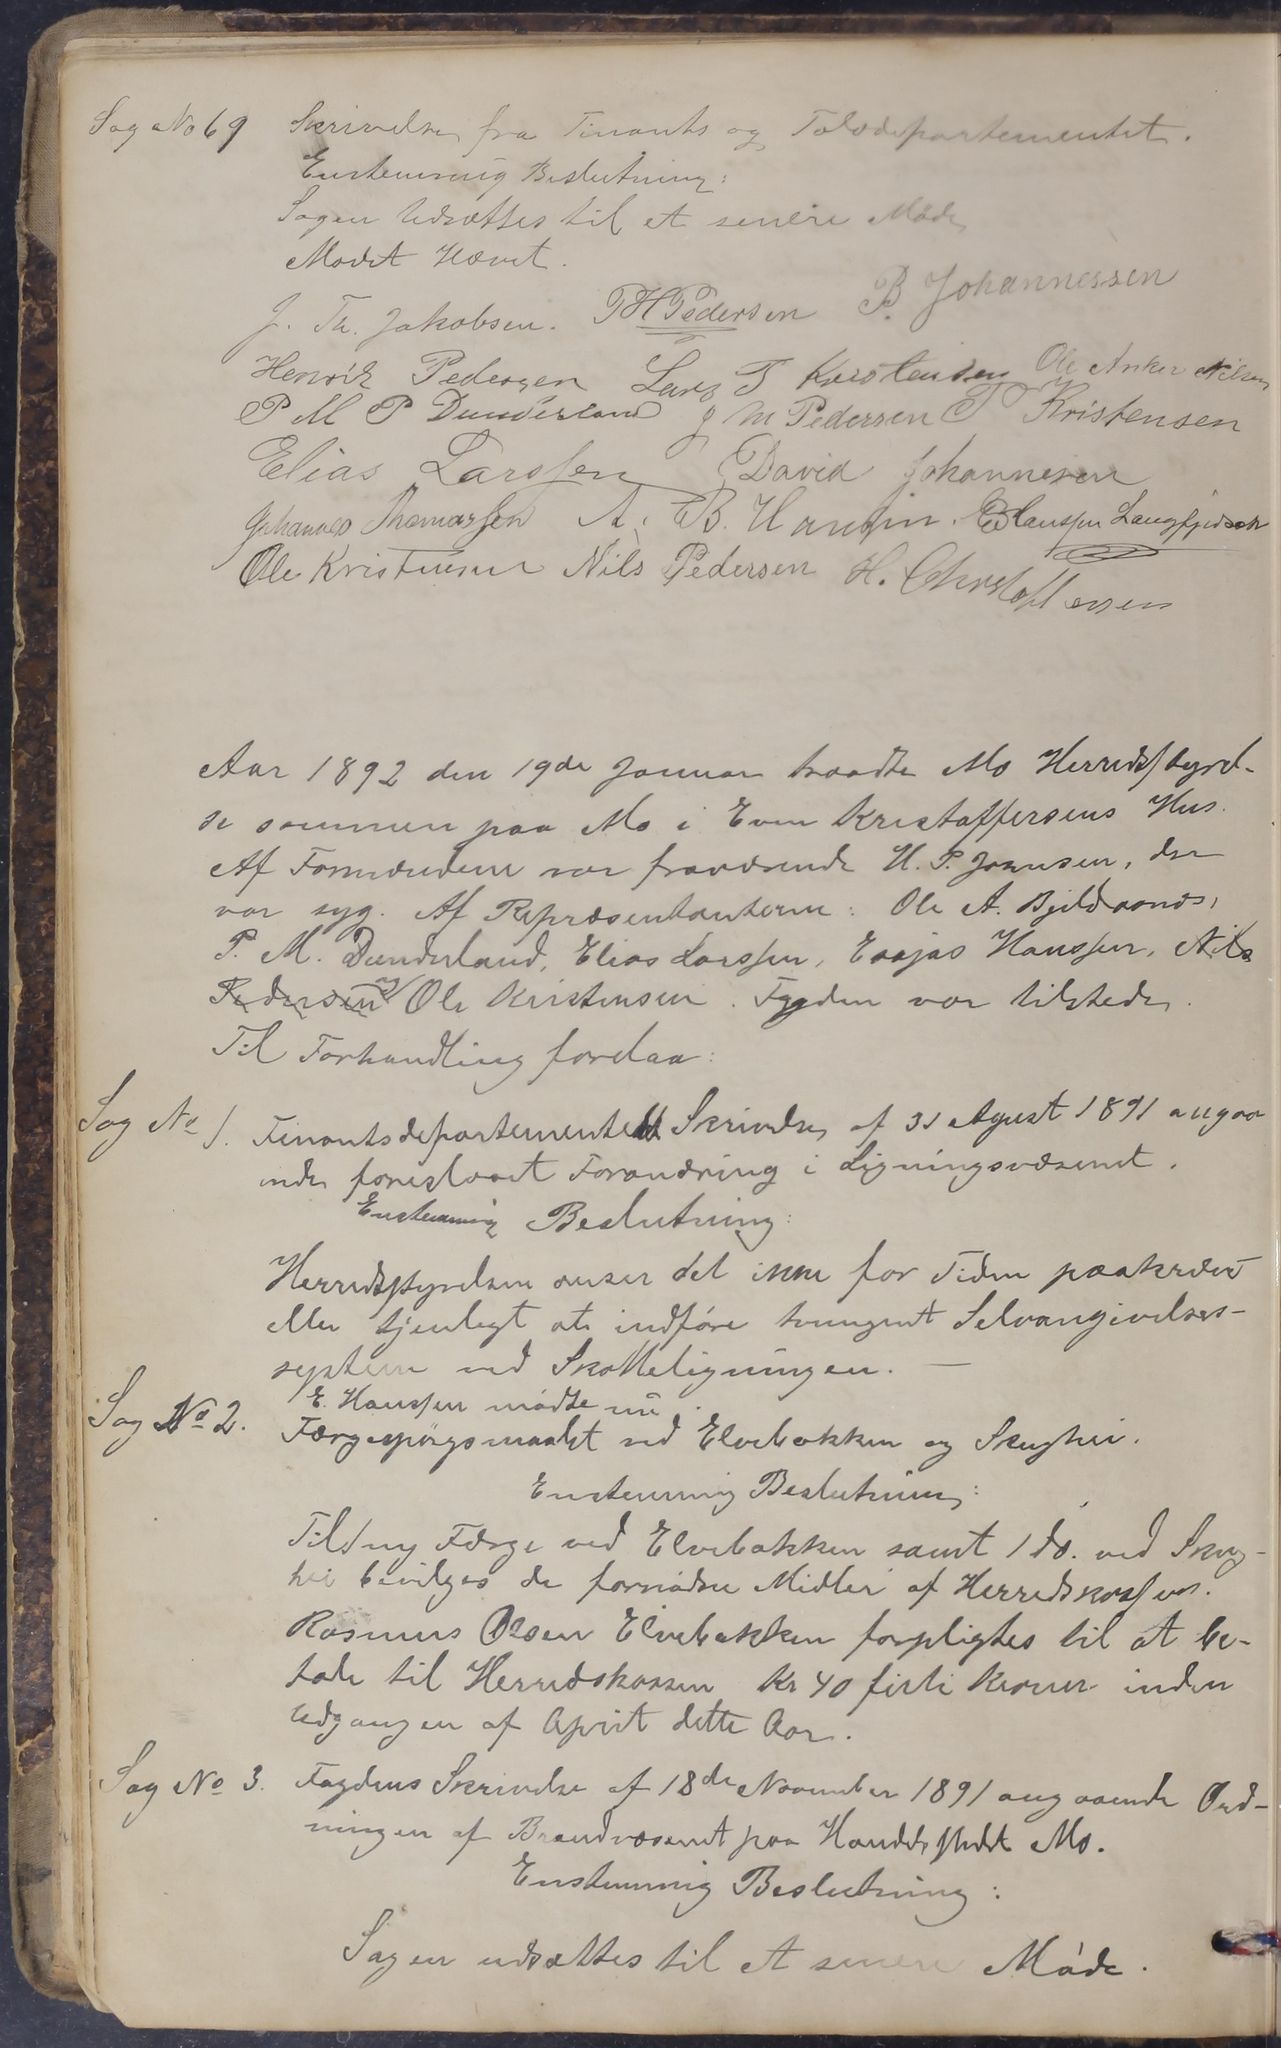 Sag No 69 Skrivelse fra Finants og Tolddepartementet.
Enstemmig Beslutning:
Sagen Udsættes til et senere Møde
Mødet Hævet.
J. Th. Jakobsen. P H Pedersen P. B Johannessen
Henrik Pedersen Lars T Kristensen Ole Anker Nilsen
P M P Dunderland J M Pedersen P Kristensen
Elias Larssen David Johannesen
Johannes Thomassen A. B. Hansen. E Hanssen Langfjeldnæs
Ole Kristensen Nils Pedersen H. Christoffersen
Aar 1892 den 19de Januar traadte Mo Herredsstyrel-
se sammen paa Mo i Even Kristoffersens Hus.
Af Formændene var fraværende H. P. Jomusen, der
var syg. Af Repræsentanterne: Ole A. Bjeldaanæs,
P. M. Dunderland, Elias Larssen, Esajas Hanssen, Nils
Pedersen og Ole Kristensen. Fogden var tilstede.
Til Forhandling forelaa:
Sag No 1. Finantsdepartementets Skrivelse af 31 Agust 1891 angaa
ende foreslaaet Forandring i Ligningsvæsenet.
Enstemmig Beslutning:
Herredsstyrelsen anser det ikke for Tiden paakrævet
eller tjenligt at indføre tvungent Selvangivelses-
system ved Skatteligningen. —
E. Hanssen mødte nu.
Sag No 2. Færgespørgsmaalet ved Elvebakken og Skughei.
Enstemmig Beslutning:
Til 1 ny Færge ved Elvebakken samt 1 do. ved Skug-
hei bevilges de fornødne Midler af Herredskassen.
Rasmus Olsen Elvebakken forpligtes til at be-
tale til Herredskassen Kr 40 firti Kroner inden
Udgangen af April dette Aar.
Sag No 3. Fogdens Skrivelse af 18de November 1891 angaaende Ord-
ningen af Brandvæsenet paa Handelsstedet Mo.
Enstemmig Beslutning:
Sagen udsættes til et senere Møde.